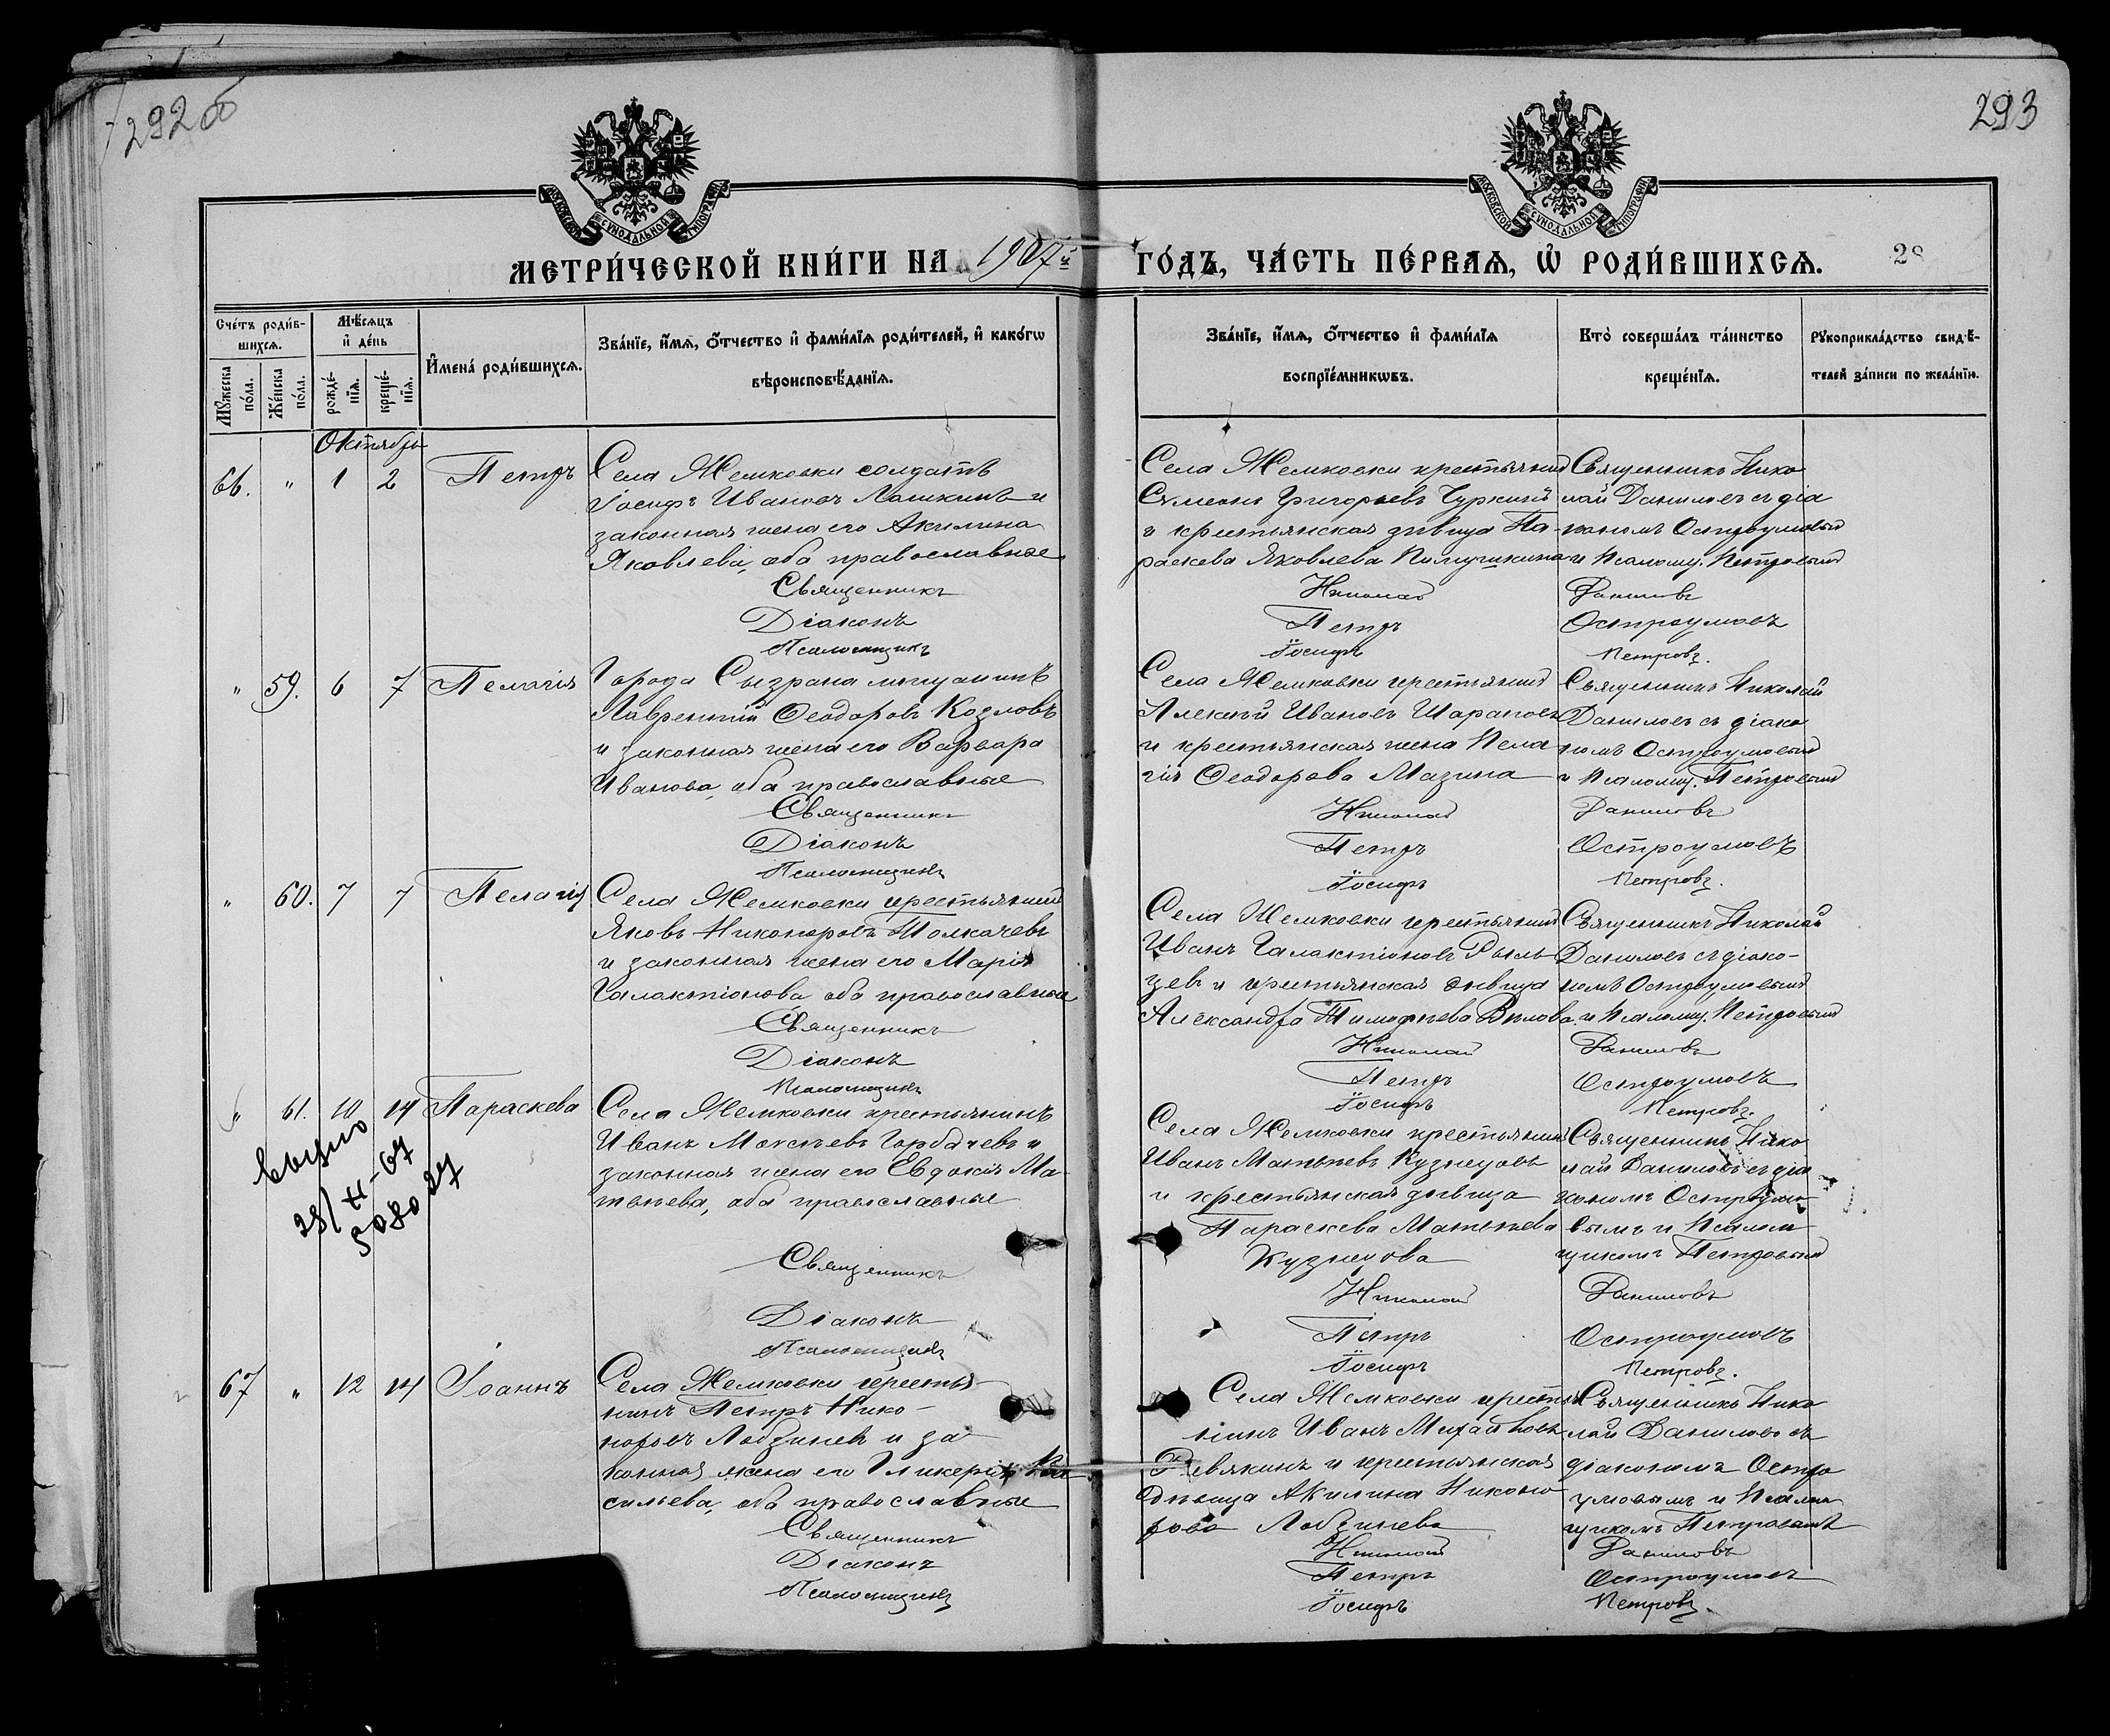 292 об
293
МОСКОВСКОЙ СѴНОДАЛЬНОЙ ТИПОГРАФІИ
МОСКОВСКОЙ СѴНОДАЛЬНОЙ ТИПОГРАФІИ
МЕТРИ́ЧЕСКОЙ КНИ́ГИ НА 1907й
ГО́ДЪ, ЧА́СТЬ ПЕ́РВАѦ, Ѡ҆ РОДИ́ВШИХСѦ.
28
Сче́тъ роди́в-
шихсѧ.
Мꙋ́жеска по́ла.
Же́нска по́ла.
Мѣ́сѧцъ
и҆ де́нь
рожде́-
нїѧ.
креще́-
нїѧ.
И҆мена̀ роди́вшихсѧ.
Зва́нїе, и҆́мѧ, ѻ҆́тчество и҆ фами́лїѧ роди́телей, и҆ како́гѡ
вѣроисповѣ́данїѧ.
Зва́нїе, и҆́мѧ, ѻ҆́тчество и҆ фами́лїѧ
воспрїе́мникѡвъ.
Кто̀ соверша́лъ та́инство
креще́нїѧ.
Рꙋкоприкла́дство свидѣ́-
телей за́писи по жела́нїю.
Октябрь
66. " 1 2 Петръ
Села Жемковки солдатъ
Іосифъ Ивановъ Лошкинъ и
законная жена его Акилина
Яковлева, оба православные
Священникъ
Діаконъ
Псаломщикъ
Села Жемковки крестьянинъ
Сѵмеонъ Григорьевъ Чуркинъ
и крестьянская дѣвица Па-
раскева Яковлева
Николай
Петръ
Іосифъ
Священникъ Нико
лай Даниловъ съ діа
кономъ Остроумовым
и Псаломщ. Петровымъ
Даниловъ
Остроумовъ
Петровъ.
" 59. 6 7 Пелагія
Города Сызрана мѣщанинъ
Лаврентій Ѳеодоровъ Козловъ
и законная жена его Варвара
Иванова, оба православные
Священникъ
Діаконъ
Псаломщикъ
Села Жемковки крестьянинъ
Алексѣй Ивановъ Шараповъ
и крестьянская жена Пела
гія Ѳеодорова Мазина
Николай
Петръ
Іосифъ
Священникъ Николай
Даниловъ съ діако
номъ Остроумовым
и Псаломщ. Петровымъ
Даниловъ
Остроумовъ
Петровъ.
" 60. 7 7 Пелагія
Села Жемковки крестьянинъ
Яковъ Никоноровъ Толкачевъ
и законная жена его Марія
Галактіонова, оба православные
Священникъ
Діаконъ
Псаломщикъ
Села Жемковки крестьянинъ
Иванъ Галактіоновъ Рыль-
цевъ и крестьянская дѣвица
Александра Тимофѣева Вилова
Николай
Петръ
Іосифъ
Священникъ Николай
Даниловъ съ діако-
номъ Остроумовымъ
и Псаломщ. Петровымъ
Даниловъ
Остроумовъ
Петровъ.
" 61. 10 14 Параскева
28/XI-67
508027
Села Жемковки крестьянинъ
Иванъ Моисѣевъ Горбачевъ и
законная жена его Евдокія Ма-
твѣева, оба православные
Священникъ
Діаконъ
Псаломщикъ
Села Жемковки крестьянинъ
Иванъ Матвѣевъ Кузнецовъ
и крестьянская дѣвица
Параскева Матвѣева
Кузнецова
Николай
Петръ
Іосифъ
Священникъ Нико
лай Даниловъ съ діа
кономъ Остроумо
вымъ и Псалом
щикомъ Петровымъ
Даниловъ
Остроумовъ
Петровъ.
67 " 12 14 Іоаннъ
Села Жемковки крестья-
нинъ Петръ Нико-
норовъ Лобзиневъ и за
конная жена его Гликерія Ва
сильева, оба православные
Священникъ
Діаконъ
Псаломщикъ
Села Жемковки крестья
нинъ Иванъ Михайловъ
Ревякинъ и крестьянская
дѣвица Акилина Никоно
рова Лобзинева
Николай
Петръ
Іосифъ
Священникъ Нико
лай Даниловъ съ
діакономъ Остро
умовымъ и Псалом
щикомъ Петровымъ
Даниловъ
Остроумовъ
Петровъ.